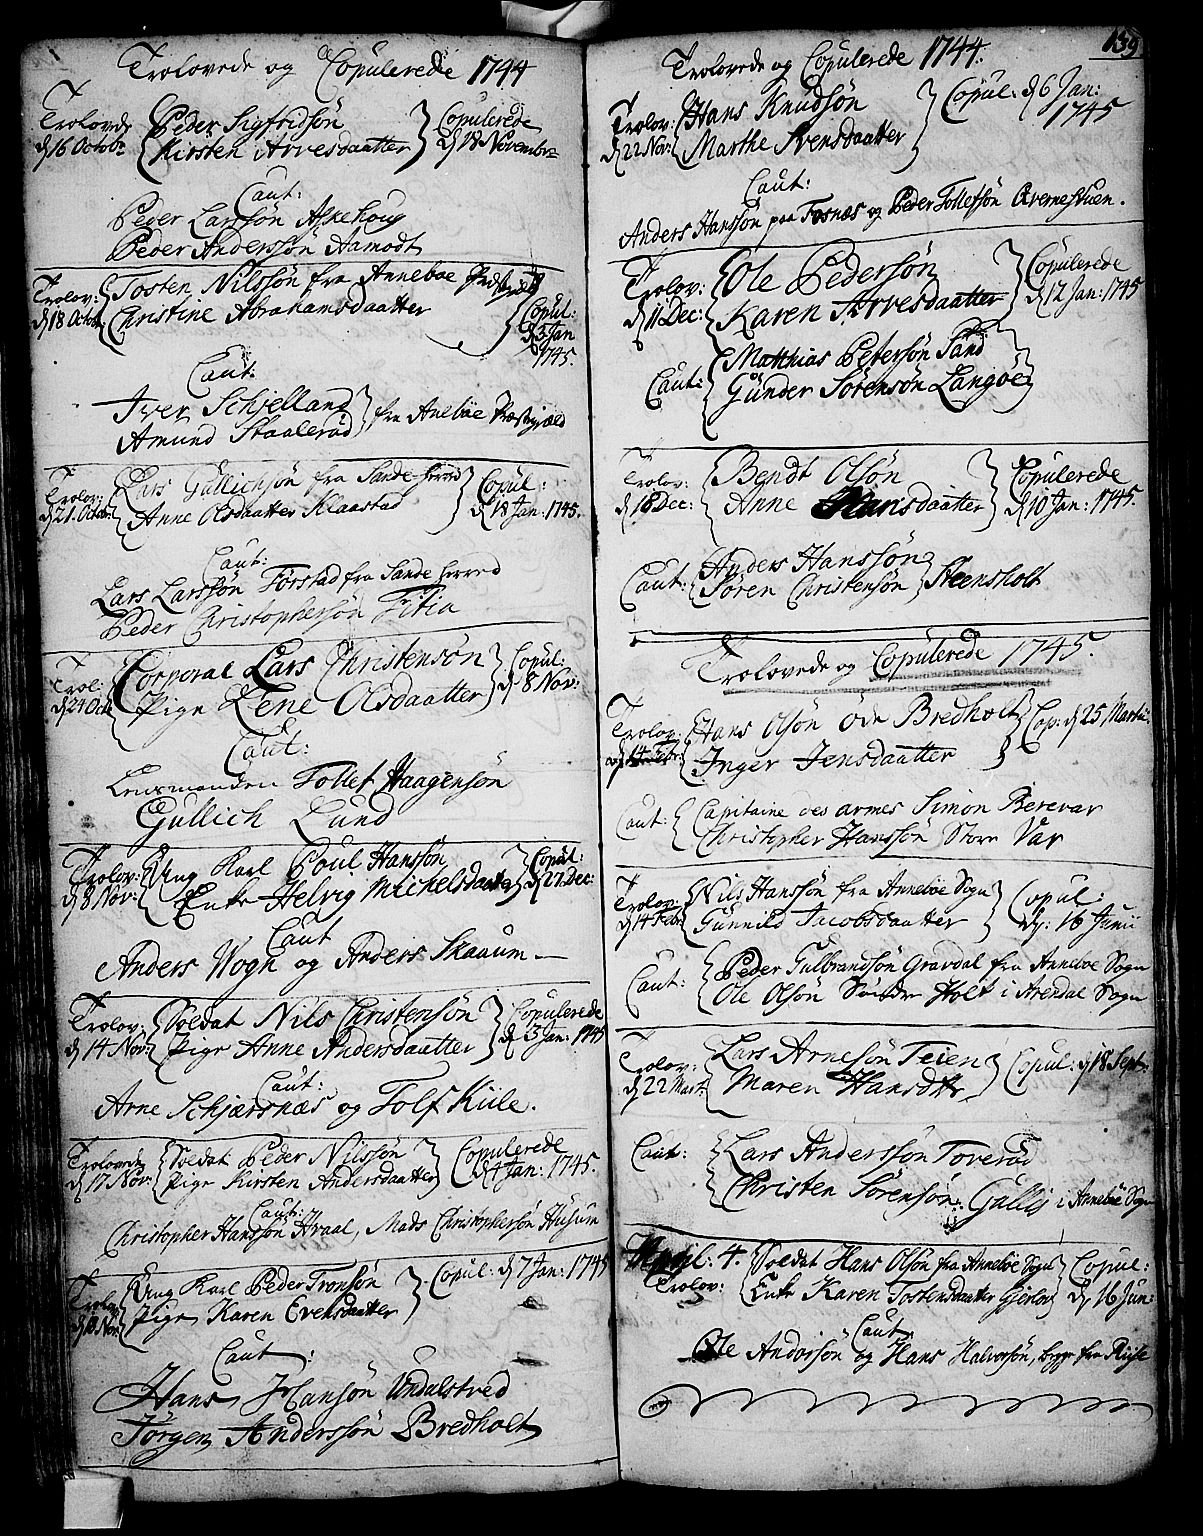 Trolovede og Copulerede 1744
Trolovede Peder Sigfridsön Copulerede
d 16 Octobr Kirsten Arvesdaatter d 18 Novembr
Caut:
Peder Larssön Askehoug
Peder Anderssön Aamodt
Trolov: Tosten Nilssön fra Anneboe
d 18 Octob Christine Abrahamsdaatter Copul:
d 3 Jan
1745.
Caut.
Iver Schjelland
Amund Staalerød fra Aneböe Præstegiæld
Trolov: Lars Gullichsön fra Sande-herred Copul:
d 21. Octob: Anne Olsdaatter Klaastad d 18 Jan: 1745.
Caut:
Lars Larssön Förstad fra Sande herred
Peder Christophersön
Trol: Corporal Lars Christensön Copul:
d 24 Oct Pige Lene Olsdaatter d 8 Nov:
Caut:
Lensmanden Tollef Haagensön
Gullich Lund
Trolov: Ung Karl Poul Hanssön Copul:
d 8 Nov: Enke Helvig Michelsdaatter d 27. Dec:
Caut
Anders Wogn og Anders Skaaum
Trolov: Soldat Nils Christensön Copulerede
d 14 Nov: Pige Anne Andersdaatter d 3 Jan: 1745
Caut:
Arne Schjærsnæs og Tolf Kiile.
Trolovede Soldat Peder Nilssön Copulerede
d 17 Nov: Pige Kirsten Andersdaatter d 4 Jan: 1745.
Caut:
Christopher Hanssön Hraal, Mads Christophersön Husum
Trolov Ung Karl Peder Tronsön Copul: d 7 Jan: 1745
d 18 Nov: Pige Karen Evensdaatter
Caut:
Hans Hansön Undalstved
Jörgen Anderssön Bredholt
139
Trolovede og Copulerede 1744.
Trolov: Hans Knudsön Copul: d 6 Jan:
d 22 Nov: Marthe Svensdaatter 1745
Caut:
Anders Hanssön paa Fosnæs og Peder Tollefsön Qvernestuen.
Trolov: Ole Pedersön Copulerede
d 11 Dec: Karen Arvesdaatter d 12 Jan: 1745
Caut: Matthias Petersön Sand
Gunder Sörensön Langöe
Trolov: Bendt Olsön Copulerede
d 18 Dec: Anne Hansdaatter d 10 Jan: 1745.
Caut: Anders Hanssön
Sören Christensön Steensholt
Trolovede og Copulerede 1745.
Trolov: Hans Olsön öde Bredholt Cop: d 25 Martii
Inger Jensdaatter
Caut: Capitaine des armes Simon Berevar
Christopher Hanssön Store Var
Trolov: Nils Hanssön fra Anneböe Sogn Copul:
d 14 Febr Gunnild Jacobsdaatter d: 16 Junii
Caut: Peder Gulbrandsön Gravdal fra Anneböe Sogn
Ole Olsön Söndre Holt i Arendal Sogn
Trolov: Lars Arnesön Teien Copul: d 18 Sept:
d 22 Mart: Maren Hansdtr
Caut: Lars Anderssön Toveröd
Christen Sörensön Gulliy i Anneböe Sogn
April: 4. Soldat Hans Olsön fra Anneböe Sogn Copul:
Trolov: Enke Karen Tostensdaatter Gierlov d, 16 Jun:
Caut
Ole Andorsön og Hans Halvorsön, begge fra Riise